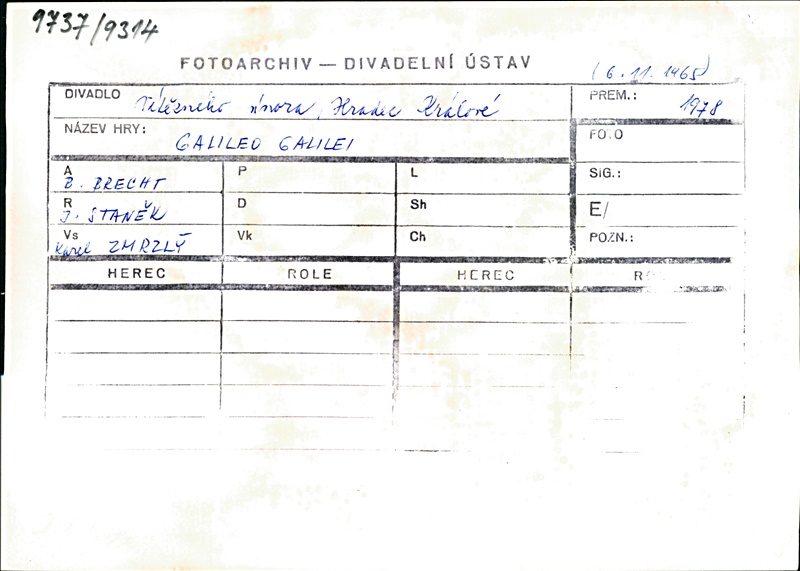 9737/9314
FOTOARCHIV — DIVADELNÍ ÚSTAV
(6.11.1965)
DIVADLO Vítězného února, Hradec Králové
PREM.: 1978
NÁZEV HRY: GALILEO GALILEI
FOTO
A B. BRECHT
P
L
SIG.:
R J. STANĚK
D
Sh
E/
Vs Karel ZMRZLÝ
Vk
Ch
POZN.:
HEREC ROLE HEREC RO